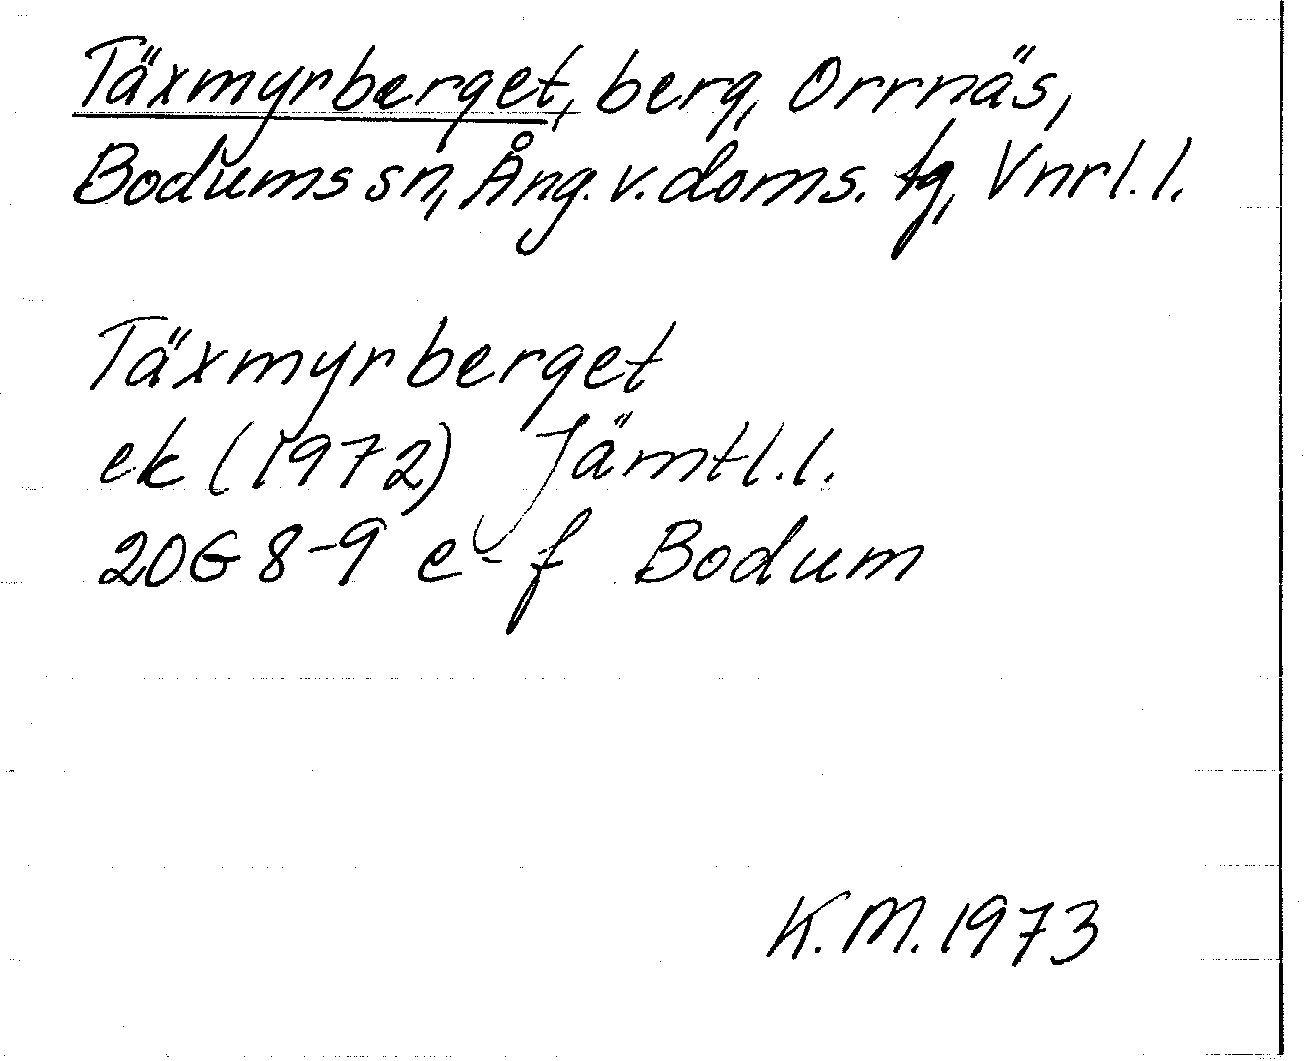 Täxmyrberget, berg, Orrnäs,
Bodums sn, Ång. v. doms. tg, Vnrl. l.
Täxmyrberget
ek (1972) Jämtl. l.
20G 8-9 e-f Bodum
K. M. 1973